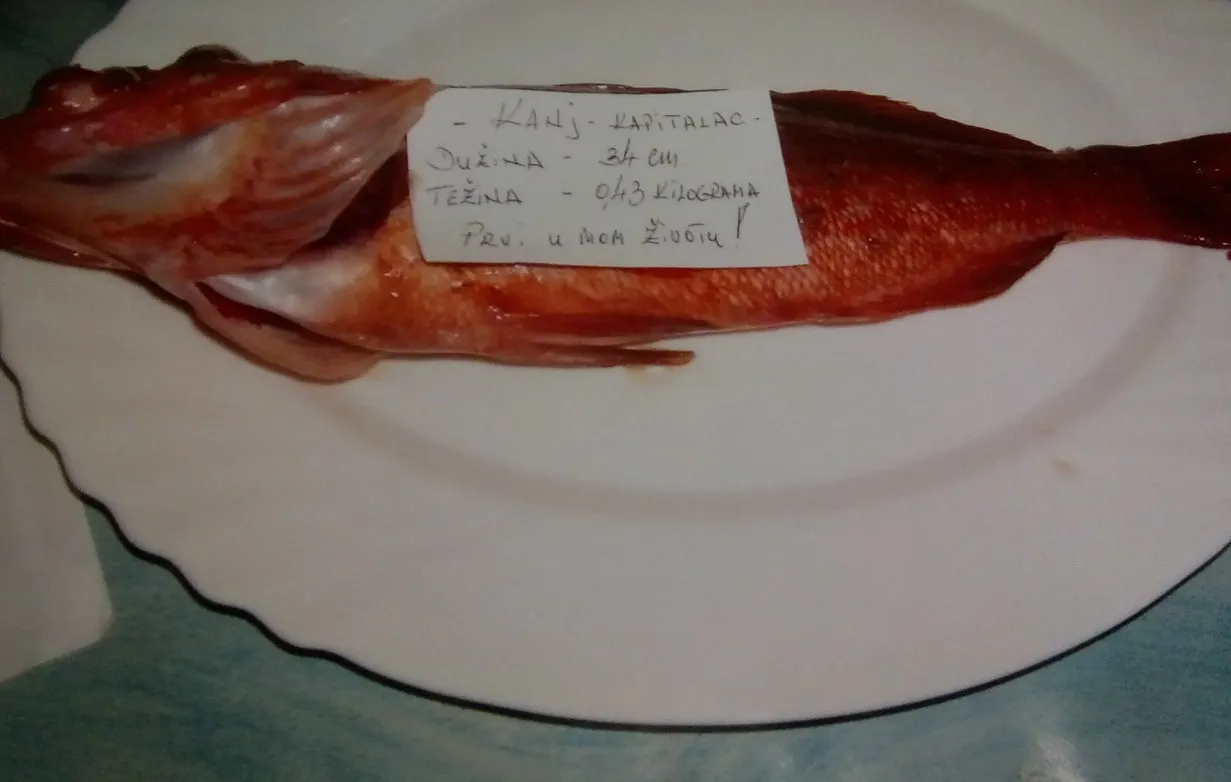 - KANj - KAPiTALAC -
DUŽiNA - 34 cm
TEŽiNA - 0,43 KiLOGRAMA
PRVi U MOM ŽiVOTU!